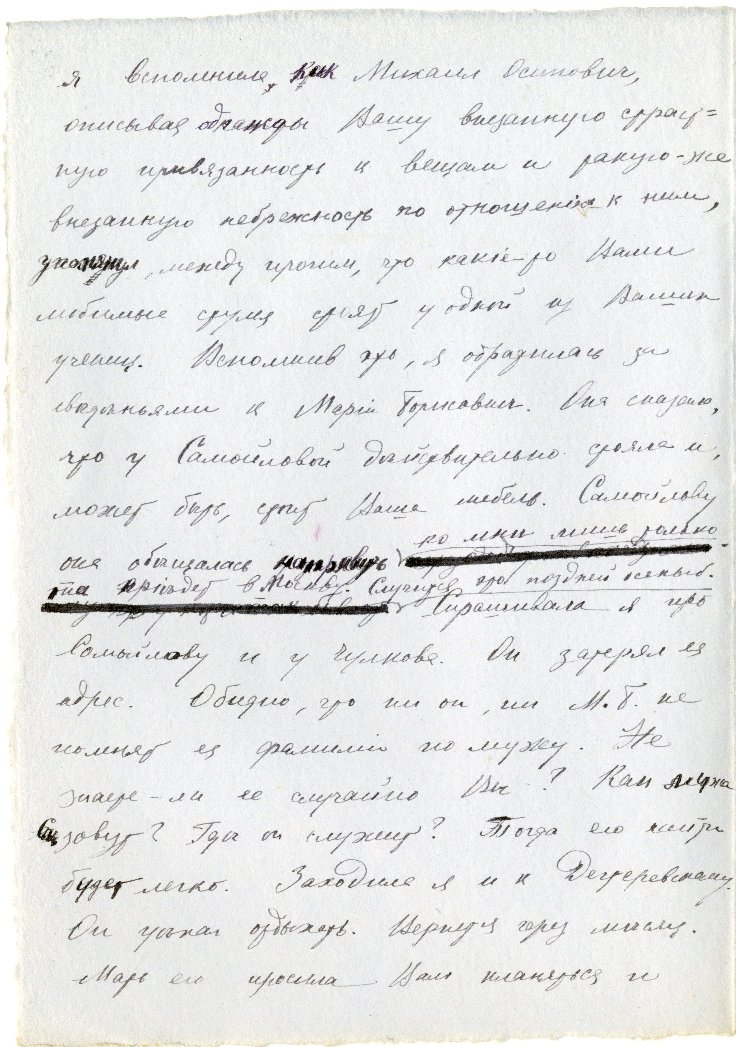 я вспомнила, как Михаил Осипович,
описывая однажды Вашу внезапную страст=
ную привязанность к вещам и такую-же
внезапную небрежность по отношенію к ним,
упомянул, между прочим, что какіе-то Вами
любимые стулья стоят у одной из Ваших
учениц. Вспомнив это, я обратилась за
свѣдѣньями к Маріи Борисовне. Она сказала,
что у Самойловой действительно стояла и,
может быть, стоит Ваша мебель. Самойлову
она обещалась направить ко мнѣ лишь только
та пріѣдет в Москву. Случится это поздней осенью.
Спрашивала я про
Самойлову и у Чулкова. Он затерял ея
адрес. Обидно, что ни он, ни М.Б. не
помнят ея фамиліи по мужу. Не
знаете-ли ее случайно Вы? Как мужа
зовут? Где он служит? Тогда его найти
будет легко. Заходила я и к
Он уѣхал отдыхать. Вернется через мѣсяц.
Мать его просила Вам кланяться и